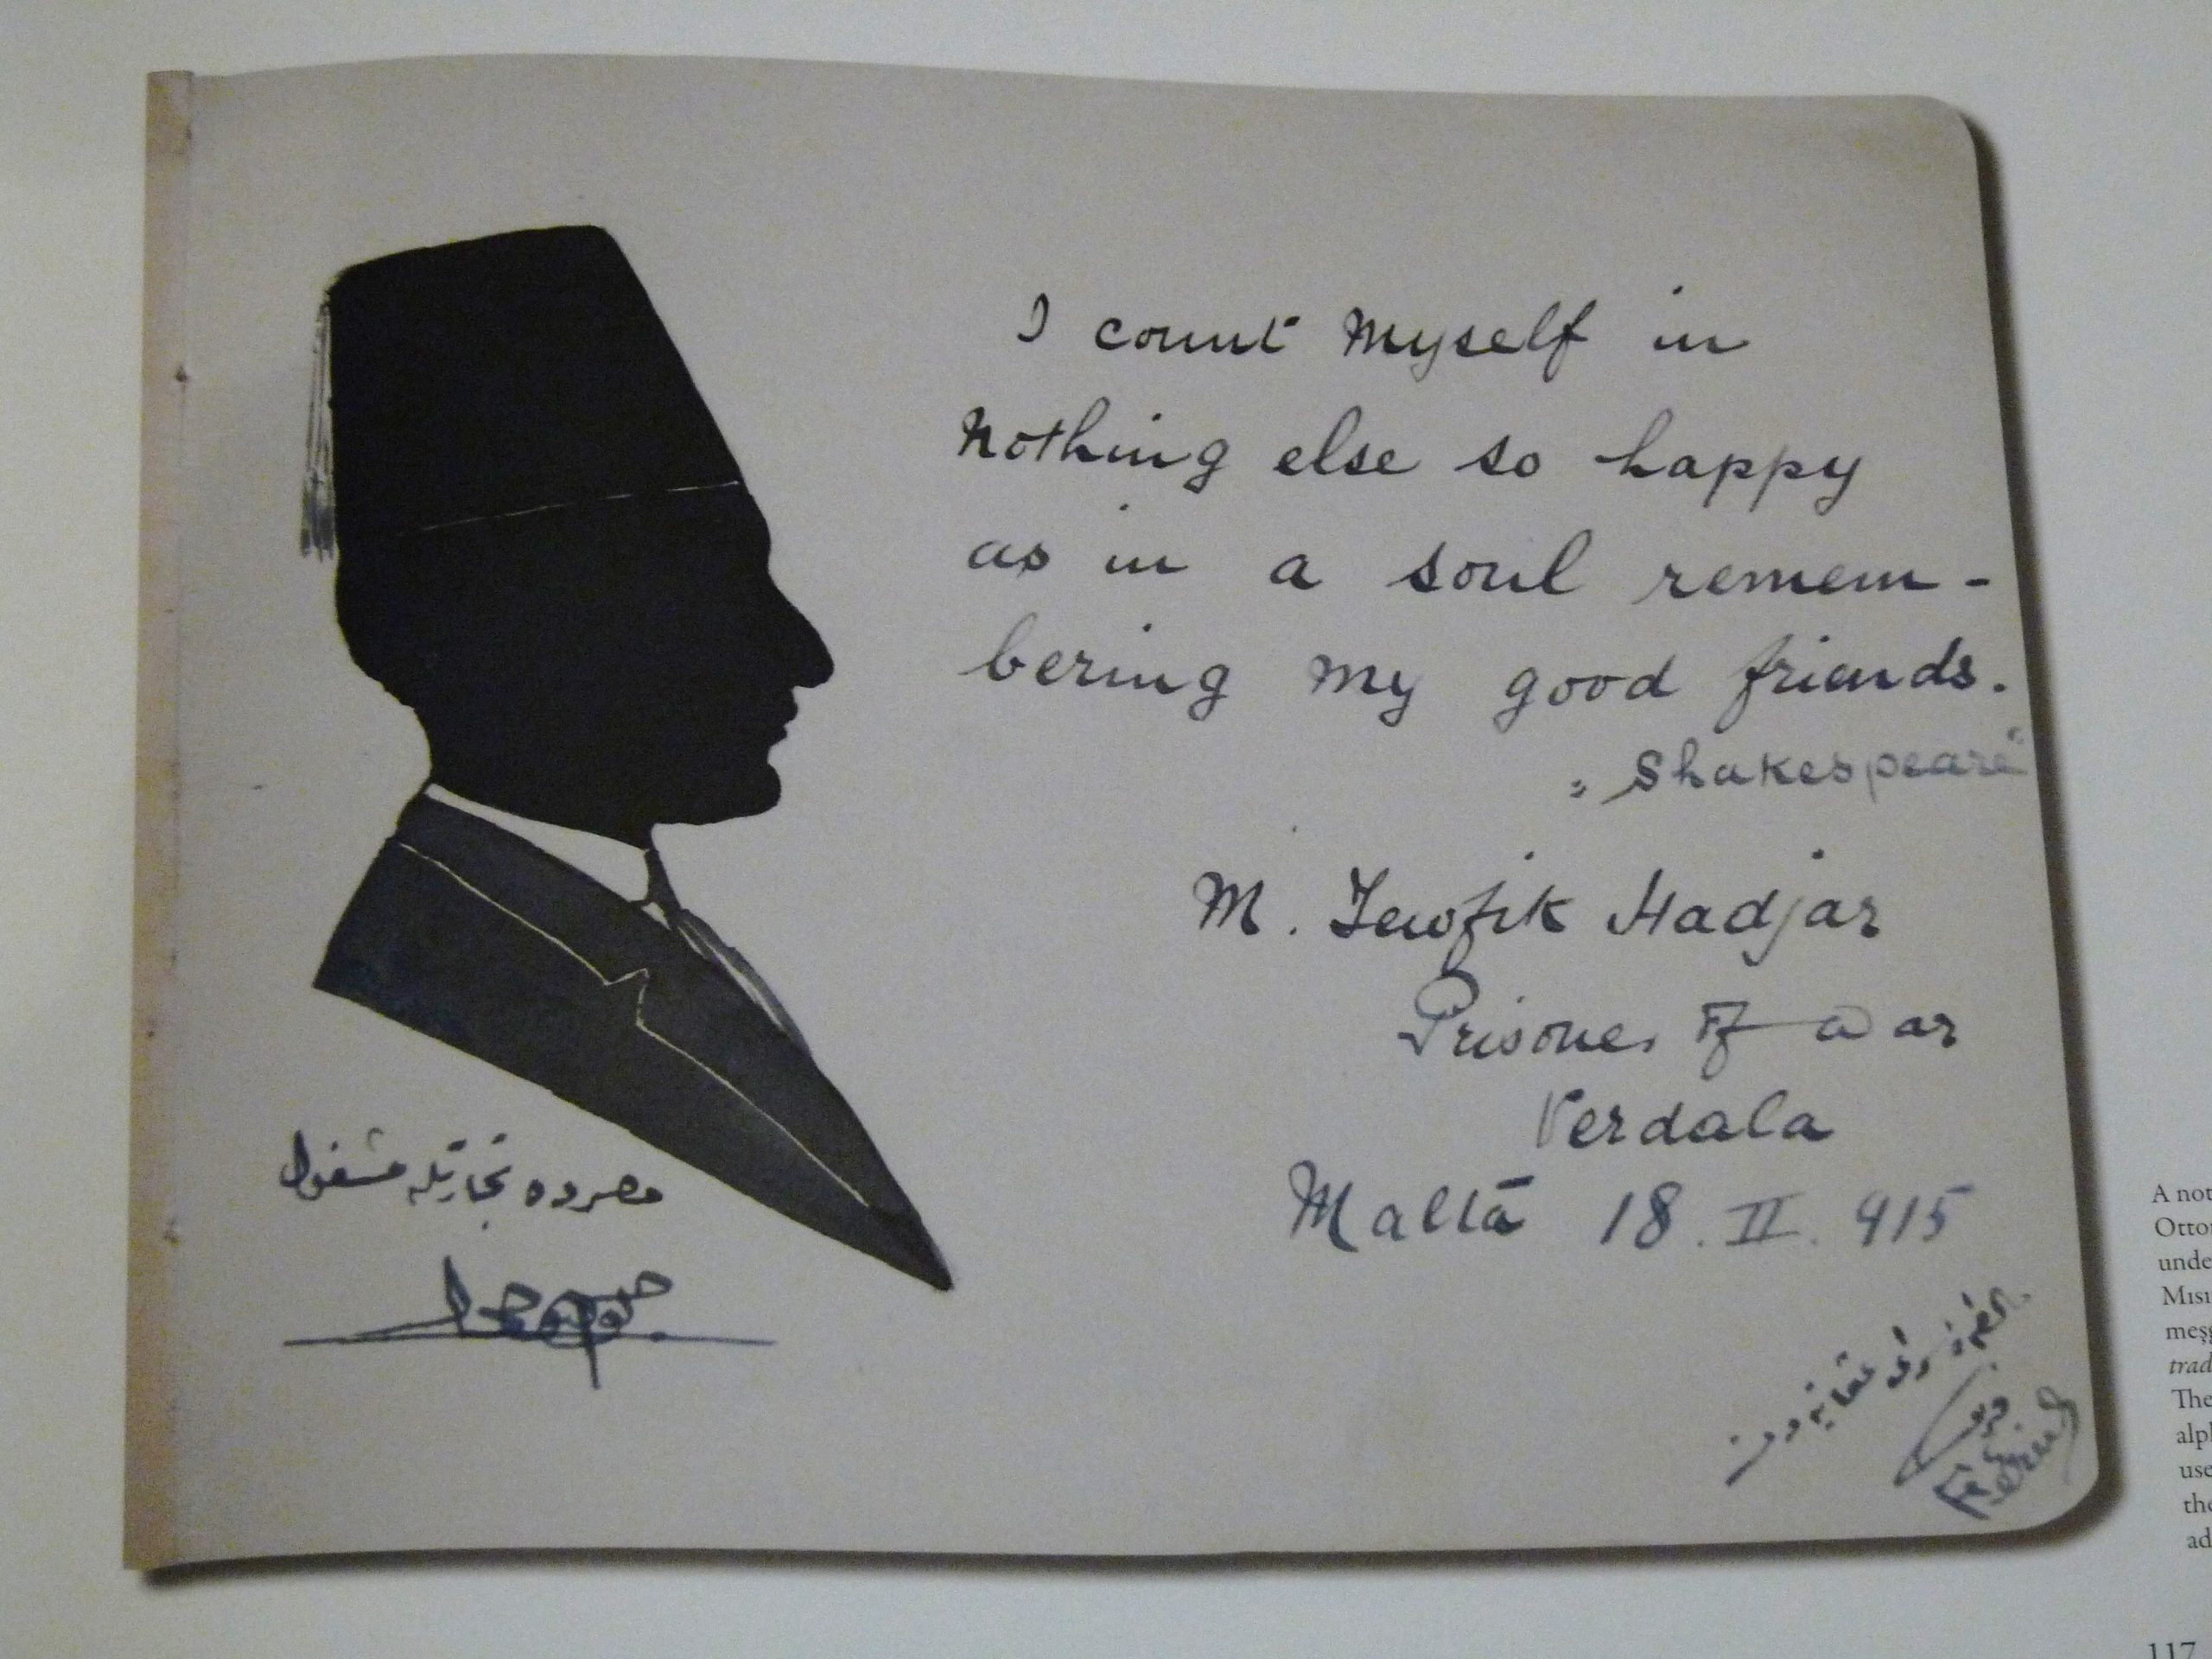 I count myself in
nothing else so happy
as in a soul remem-
bering my good friends.
„Shakespeare"
M. Tewfik Hadjar
Prisoner of war
Verdala
Malta 18.II.915
مصرده تجارتله مشغول
Ferid
A not
Otto
unde
Mısı
meşg
trad
The
alph
use
the
ad
117